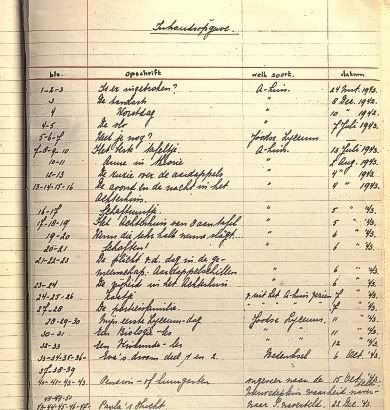 Inhoudsopgave.
blz. opschrift welk soort. datum
1-2-3 Is er ingebroken? A-huis. 24 Mrt. 1943.
3 De tandarts " 8 Dec. 1942.
4 Worstdag " 10 " 1942
4-5 De vlo " 7 Juli 1943.
5-6-7 Weet je nog? Joodse Lyceum
7-8-9-10 Het beste tafeltje A-huis. 13 Juli 1943.
10-11 Anne in theorie " 2 Aug. 1943.
12-13 De ruzie over de aardappels " 4 " 1943.
13-14-15-16 De avond en de nacht in het " 4 " 1943.
Achterhuis.
16-17 Schaftuurtje " 5 " 43.
17-18-19 Het Achterhuis van 8 aan tafel " 5 " 43.
19-20 Wenn die Uhr halb neune slägt... " 6 " 43.
20-21 Schaften! " 6 " 43.
21-22-23 De plicht v.d. dag in de ge-
meenschap: Aardappelschillen " 6 " 43.
23-24 De vrijheid in het Achterhuis " 6 " 43.
24-25-26 Kaatje uit het A-huis gezien 7 " 43.
27-28 De portiersfamilie. " 7 " 43.
28-29-30 Mijn eerste Lyceum-dag Joodse Lyceum. 11 " 43.
30-31 Een Biologie-les " 11 " 43.
32-33 Een Wiskunde-les " 12 " 43.
33-34-35-36- Eva's droom deel 1 en 2. Bedenksel 6 Oct. 43.
37-38-39
40-41-42-43 Pension- of huurgasten ongeveer naar de 15 Oct. 43.
Paula's vlucht naar 22 Dec. 43.